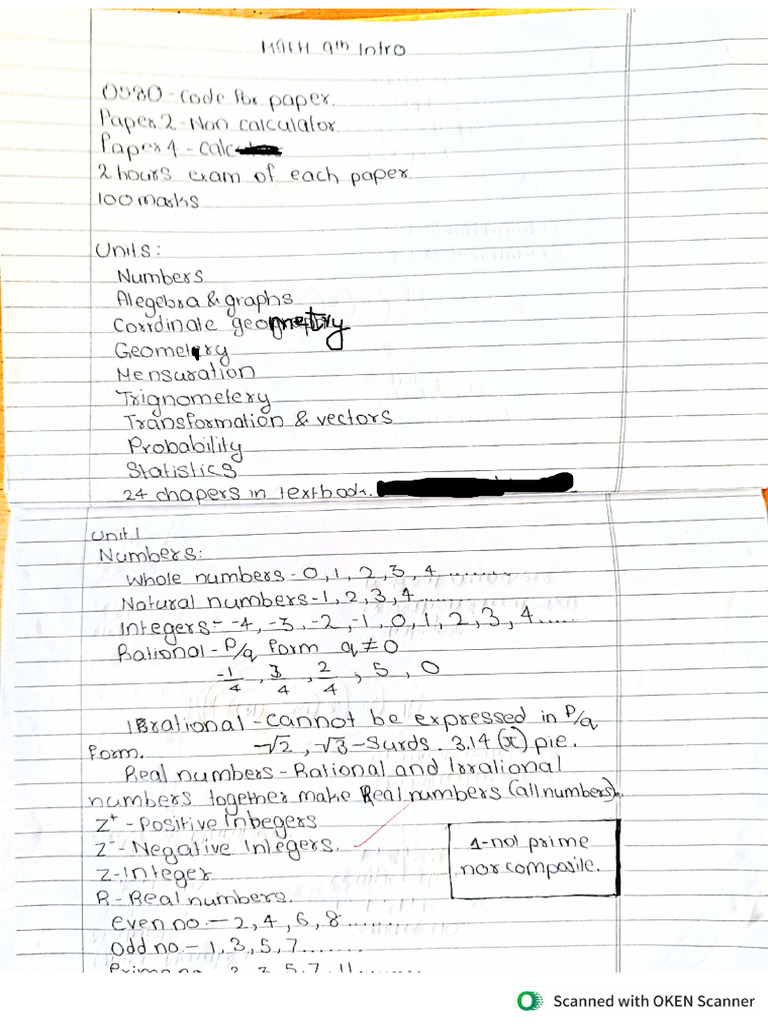 MATH 9th Intro
0580-Code for paper.
Paper 2-Non calculator
Paper 4-calc
2 hours exam of each paper
100 marks
Units:
Numbers
Alegebra & graphs
Corrdinate geometry
Geometery
Mensuration
Trignometery
Transformation & vectors
Probability
Statistics
24 chapers in textbook.
Unit 1
Numbers:
Whole numbers-0,1,2,3,4........
Natural numbers-1,2,3,4......
Integers- -4,-3,-2,-1,0,1,2,3,4.....
Rational-P/q form q≠0
-1/4, 3/4, 2/4, 5, 0
Irrational-cannot be expressed in P/q
form. -√2, √3-Surds. 3.14(π) pie.
Real numbers-Rational and Irrational
numbers together make Real numbers (all numbers).
Z⁺-Positive Integers
Z⁻-Negative Integers.
Z-Integer
R-Real numbers.
1-not prime
nor composite.
Even no.-2,4,6,8........
Odd no.-1,3,5,7.......
Prime no. 2,3,5,7,11........
Scanned with OKEN Scanner